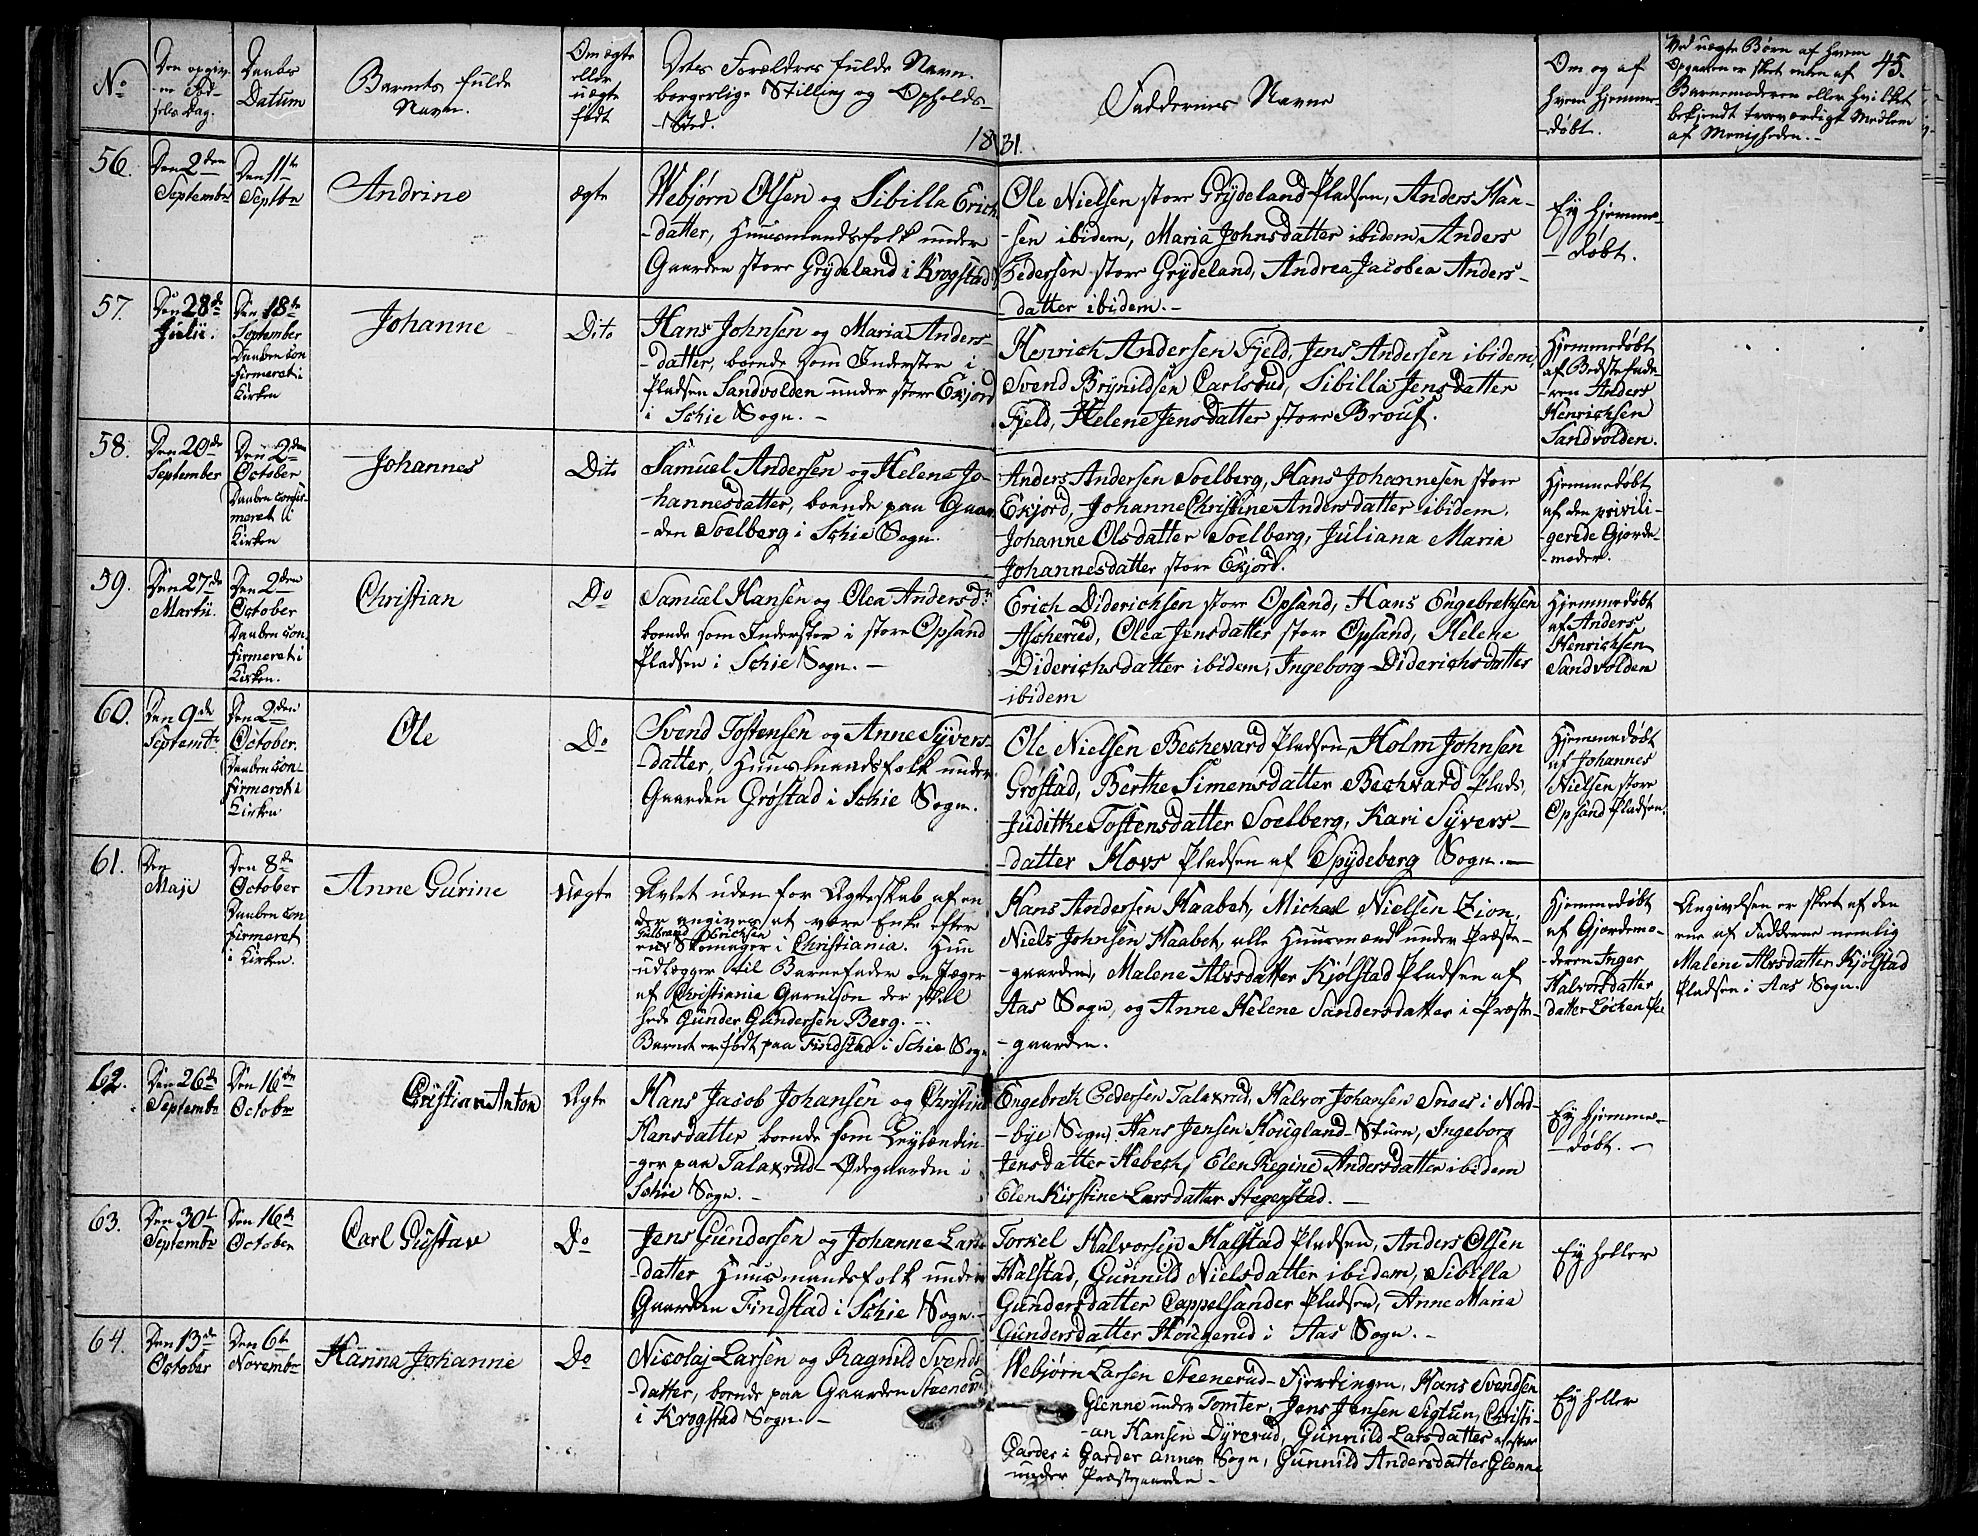 No
Den angiv-
-ne Fød-
sels Dag.
Daabs
Datum
Barnets fulde
Navn.
Om ægte
eller
uægte
født
Dets Forældres fulde Navn.
borgerlige Stilling og Opholds-
-Sted.
1831.
Faddernes Navne
Om og af
hvem hjemme-
-døbt.
Ved uægte Børn af hvem
Opgaven er skeet enten af
Barnemoderen eller hvilket
bekjendt troværdigt Medlem
af Menigheden.-
45.
56.
Den 2den
Septembr
Den 11te
Septbr
Andrine
ægte
Webjørn Olsen og Sibilla Erich
-datter, Huusmandsfolk under
Gaarden store Grydeland i Krogstad
Ole Nielsen store Grydeland Pladsen, Anders Han-
-sen ibidem, Maria Johnsdatter ibidem, Anders
Pedersen store Grydeland, Andrea Jacobea Anders-
-datter ibidem.-
Ey hjemme-
- døbt.
57.
Den 28de
Julii.
Den 18te
September
Daaben con
-firmeret i
Kirken
Johanne
Dito
Hans Johnsen og Maria Anders-
-datter, boende som Inderster i
Pladsen Sandvolden under store Ekjord
i Schie Sogn. -
Henrich Andersen Fjeld, Jens Andersen ibidem,
Svend Brynildsen Carlsrud, Sibilla Jensdatter
Fjeld, Helene Jensdatter store Brous.
Hjemmedøbt
af Bedstefade-
-ren Anders
Henrichsen
Sandvolden.
58.
Den 20de
September
Den 2den
October
Daaben confir-
meret i
Kirken
Johannes
Dito
Samuel Andersen og Helene Jo-
-hannesdatter, boende paa Gaar-
-den Soelberg i Schie Sogn.
Anders Andersen Soelberg, Hans Johannesen store
Ekjord, Johanne Christine Andersdatter ibidem,
Johanne Olsdatter Soelberg, Juliana Maria
Johannesdatter store Ekjord.
Hjemmedøbt
af den privili-
-gerede Gjorde-
-moder.
59.
Den 27de
Martii.
Den 2den
October
Daaben con-
firmeret i
Kirken.
Christian
Do
Samuel Hansen og Olea Andersdr
boende som Inderster i store Opsand
Pladsen i Schie Sogn. -
Erich Diderichsen store Opsand, Hans Engebrethsen
Ascherud, Olea Jensdatter store Opsand, Helene
Diderichsdatter ibidem, Ingeborg Diderichsdatter
ibidem
Hjemmedøbt
af Anders
Henrichsen
Sandvolden
60.
Den 9de
Septembr
Den 2den
October.
Daaben con-
firmeret i
Kirken
Ole
Do
Svend Tostensen og Anne Syvers-
-datter, Huusmandsfolk under
Gaarden Grøstad i Schie Sogn.
Ole Nielsen Bechevard Pladsen, Holm Johnsen
Grøstad, Berthe Simensdatter Bechvard Plads,
Judithe Tostensdatter Soelberg, Kari Syvers-
-datter Hovs Pladsen af Spydeberg Sogn.-
Hjemmedøbt
af Johannes
Nielsen store
Opsand Pladsen.
61.
Den
Maji
Den 8de
October
Daaben con
firmeret
i Kirken.
Anne Gurine
uægte
Avlet uden for Ægteskab af en
der angives at være Enke efter
Gulbrand Erichsen
Skomager i Christiania. Hun
udlægger til Barnefader en Jæger
af Christiania Garnison der skal
hede Gunder Gundersen Berg. -
Barnet er født paa Findstad i Schie Sogn
Hans Andersen Haabet, Michael Nielsen Zion,
Niels Johnsen Haabet, alle Huusmænd under Præste-
-gaarden, Malene Alvsdatter Kjølstad Pladsen af
Aas Sogn, og Anne Helene Sandersdatter i Præste-
-gaarden.
Hjemmedøbt
af Gjordemo-
-deren Inger
Halvorsdatter
Løchen
Angivelsen er skeet af den
ene af Fadderne nemlig
Malene Alvsdatter Kjølstad
Pladsen i Aas Sogn.
62.
Den 26de
Septembr
Den 16de
Octobr
Christian Anton
Ægte
Hans Jacob Johansen og Christine
Hansdatter boende som Leylændin-
-ger paa Talaxrud-Ødegaarden i
Schie Sogn. -
Engebreth Pedersen Talaxrud, Halvor Johansen Snoes i Nord-
-bye Sogn, Hans Jensen Hougland-Stuen, Ingeborg
Jensdatter Hebech, Elen Regine Andersdatter ibidem
Elen Kirstine Larsdatter Stegenstad. -
Ey hjemme-
-døbt. -
63.
Den 30te
Septembr
Den 16de
October
Carl Gustav
Do
Jens Gundersen og Johanne Lars-
-datter Huusmandsfolk under
Gaarden Findstad i Schie Sogn.-
Torkel Halvorsen Halstad Pladsen, Anders Olsen
Halstad, Gunnild Nielsdatter ibidem, Sibilla
Gundersdatter Cappelsander Pladsen, Anne Maria
Gundersdatter Hougerud i Aas Sogn. -
Ey heller
64.
Den 13de
October
Den 6te
Novembr
Hanna Johanne
Do
Nicolaj Larsen og Ragnild Svends
-datter, boende paa Gaarden Steenerud
i Krogstad Sogn. -
Webjørn Larsen Steenerud-Fjerdingen, Hans Svendsen
Glenne under Tomter, Jens Jensen Sigtun, Christi-
-an Hansen Dyrerud, Gunnild Larsdatter
Garder i Garder annex Sogn, Gunnild Andersdatter Glenne
under Præstegaarden -
Ey heller